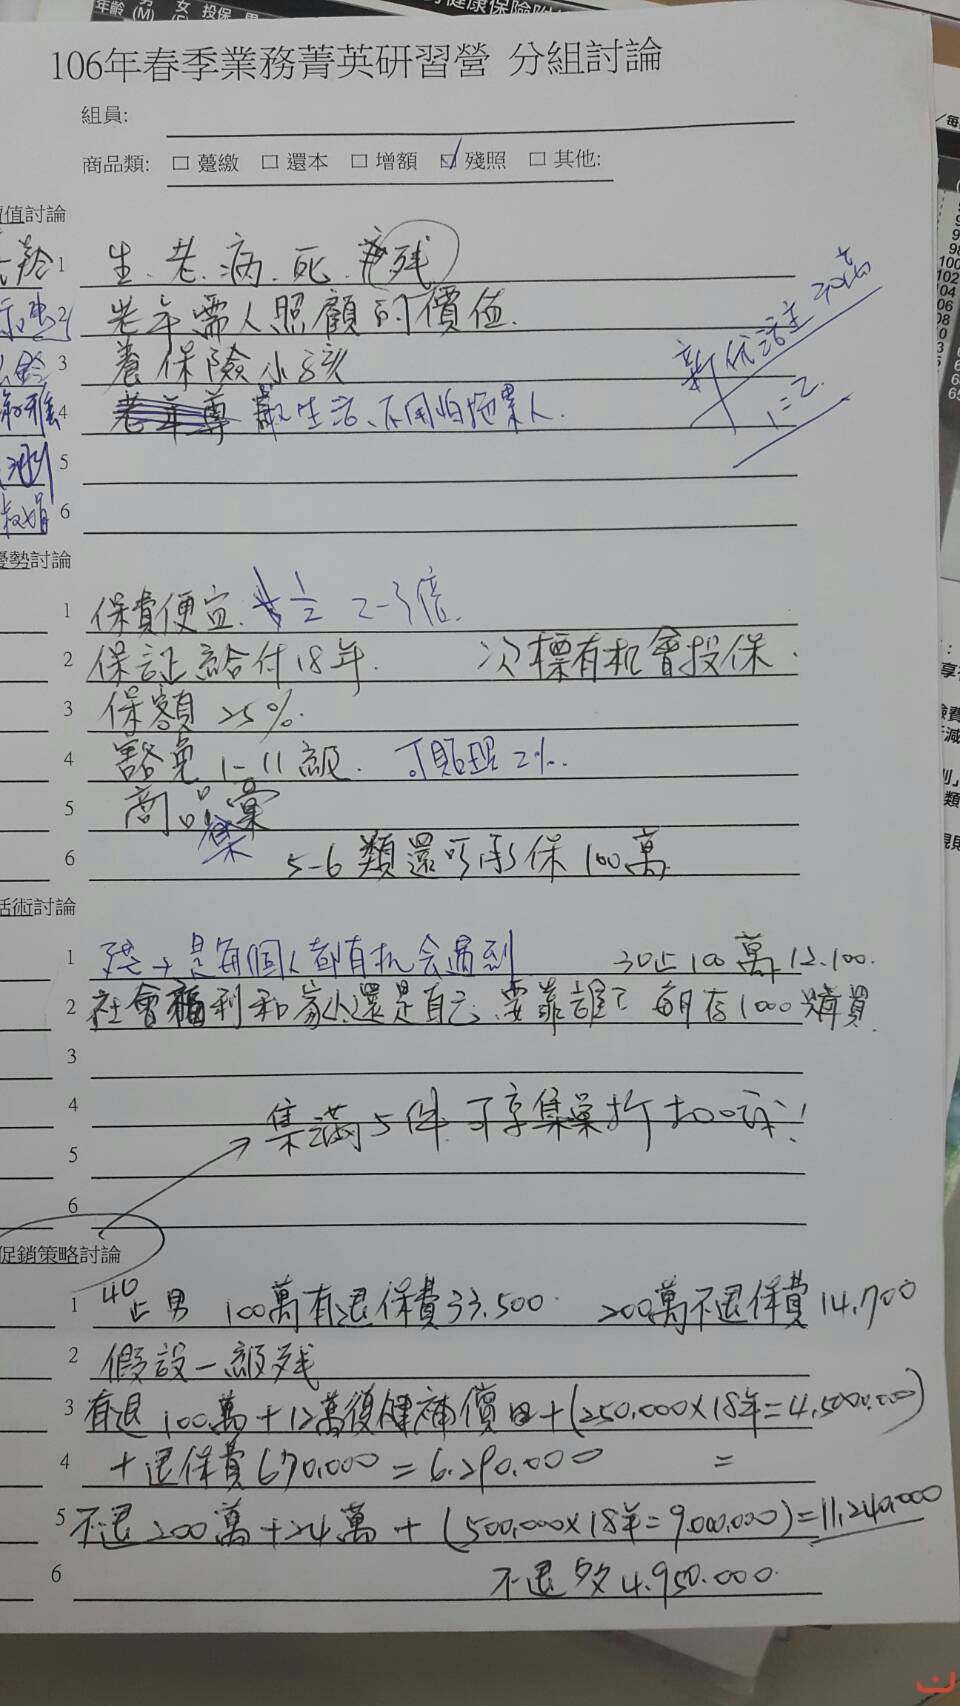 106年春季業務菁英研習營 分組討論
組員:
商品類: □ 躉繳 □ 還本 □ 增額 ☑ 殘照 □ 其他:
值討論
1 生.老.病.死.残
2 老年需人照顧的價值.
3 養保險小孩
4 生活、不用怕拖累人.
5
6
1=2.
優勢討論
1 保費便宜. 1/2 2-3倍.
2 保証給付18年. 次標有机會投保.
3 保額25%.
4 豁免1-11級. 可貼現2%.
5 商品彙
6 5-6類還可承保100萬
話術討論
1 是每個人都有机会遇到 30歲100萬12.100.
2 社會福利和家人還是自己.要靠誰? 每月存1000購買.
3
4 集滿5件可享集彙折扣
5
6
促銷策略討論
1 40歲男 100萬有退保費33.500. 200萬不退保費14.700
2 假設一級残
3 有退100萬+12萬復健補償+(250.000×18年=4.500.000)
4 +退保費670.000=6.290.000 =
5 不退200萬+24萬+(500.000×18年=9.000.000)=11.240.000
6 不退多4.950.000.